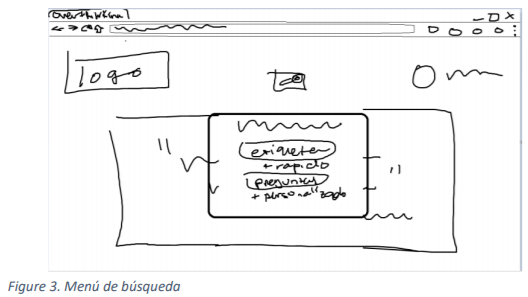 overthinking
logo
etiquetas
+ rapido
preguntas
+ personalizado
Figure 3. Menú de búsqueda